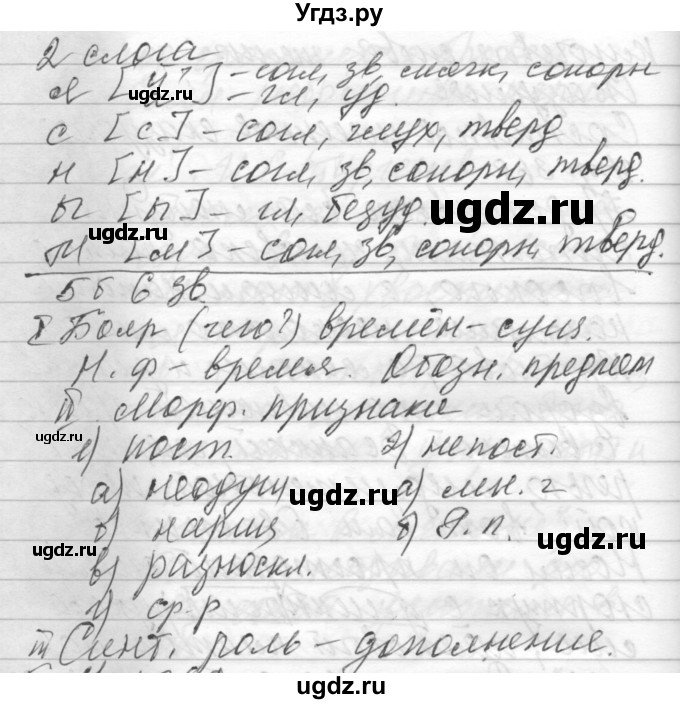 Угдз.ру
2 слога
я [й'] - согл, зв, мягк, сонорн
[а] - гл, уд.
с [с] - согл, глух, тверд
н [н] - согл, зв, сонорн, тверд.
ы [ы] - гл, безуд.
м [м] - согл, зв, сонорн, тверд.
5 б 6 зв.
I Бояр (чего?) времён - сущ.
Н. ф - время. Обозн. предмет
II Морф. признаки
1) пост. 2) непост.
а) неодуш а) мн. ч
б) нариц б) Р. п.
в) разноскл.
г) ср. р
III Синт. роль - дополнение.
ugdz.ru
ugdz.ru
ugdz.ru
ugdz.ru
ugdz.ru
ugdz.ru
ugdz.ru
ugdz.ru
ugdz.ru